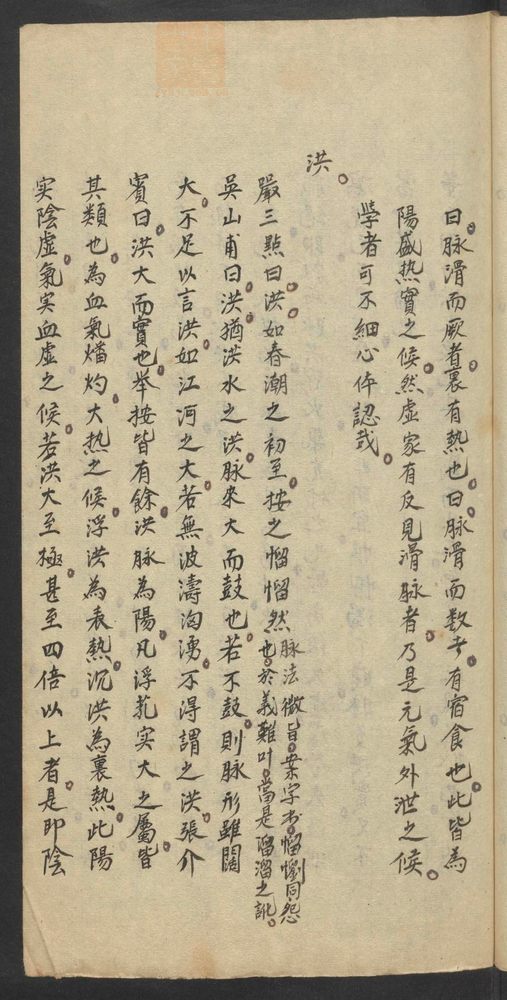 曰。脉滑而厥者。裏有熱也。曰。脉滑而数者。有宿食也。此皆為
陽盛热實之候。然虛家有反見滑脉者。乃是元氣外泄之候。
學者可不細心体認哉。
洪。
嚴三點曰。洪如春潮之初至。按之慆慆然。脉法微旨。案字書。慆懰同。怨
也。於義難叶。當是滔滔之訛。
吳山甫曰。洪猶洪水之洪。脉來大而鼓也。若不鼓。則脉形雖闊
大。不足以言洪。如江河之大。若無波濤洶湧。不得謂之洪。張介
賓曰。洪大而實也。举按皆有餘。洪脉為陽。凡浮芤实大之屬。皆
其類也。為血氣燔灼。大热之候。浮洪為表熱。沉洪為裏熱。此陽
实陰虛。氣实血虛之候。若洪大至極。甚至四倍以上者。是即陰